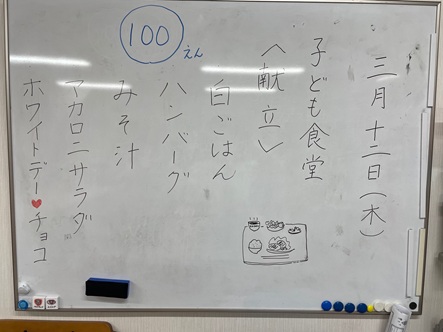 三月十二日(木)
子ども食堂
〈献立〉
白ごはん
ハンバーグ
みそ汁
マカロニサラダ
ホワイトデー♥チョコ
100えん